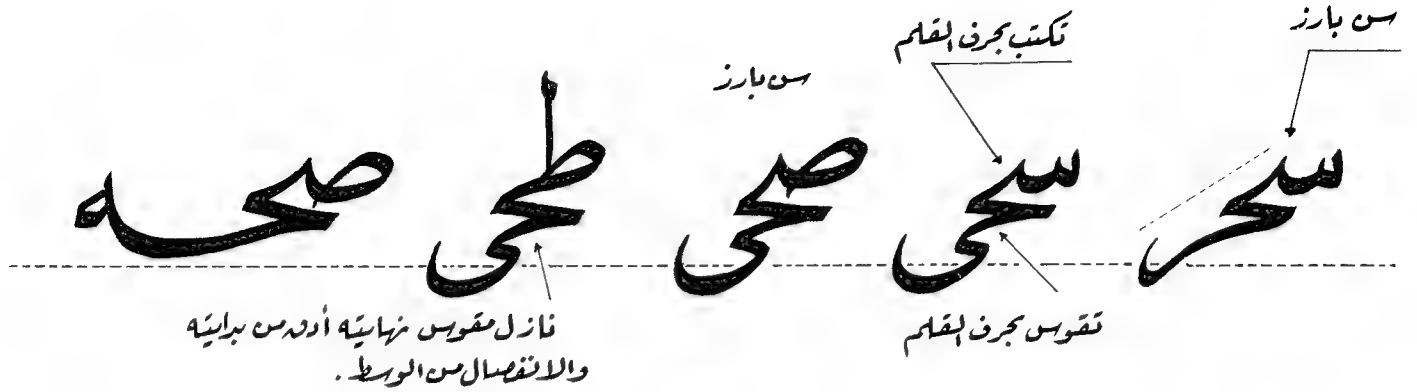 سن بارز
تكتب بحرف القلم
سن بارز
سحر سحى صحى طحى صحه
تقوس بحرف القلم
نازل مقوس نهايته أدق من بدايته
والانفصال من الوسط .